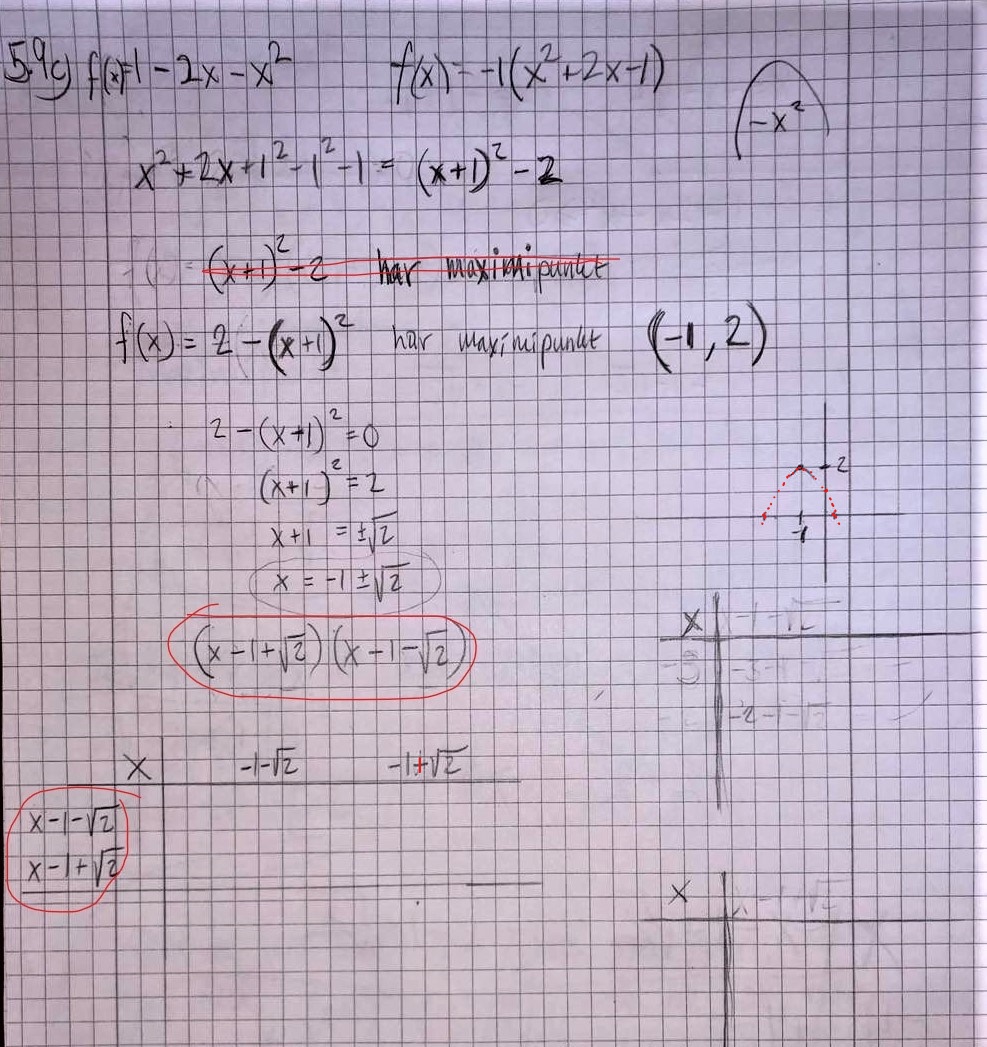 59c) f(x)=1-2x-x² f(x)=-1(x²+2x-1)
-x²
x²+2x+1²-1²-1 = (x+1)²-2
(x+1)²-2 har maximipunkt
f(x) = 2-(x+1)² har maximipunkt (-1,2)
2-(x+1)²=0
(x+1)²=2
x+1 = ±√2
x = -1±√2
(x-1+√2)(x-1-√2)
2
-1
x -1-√2
x -1-√2 -1+√2
x-1-√2
x-1+√2
x